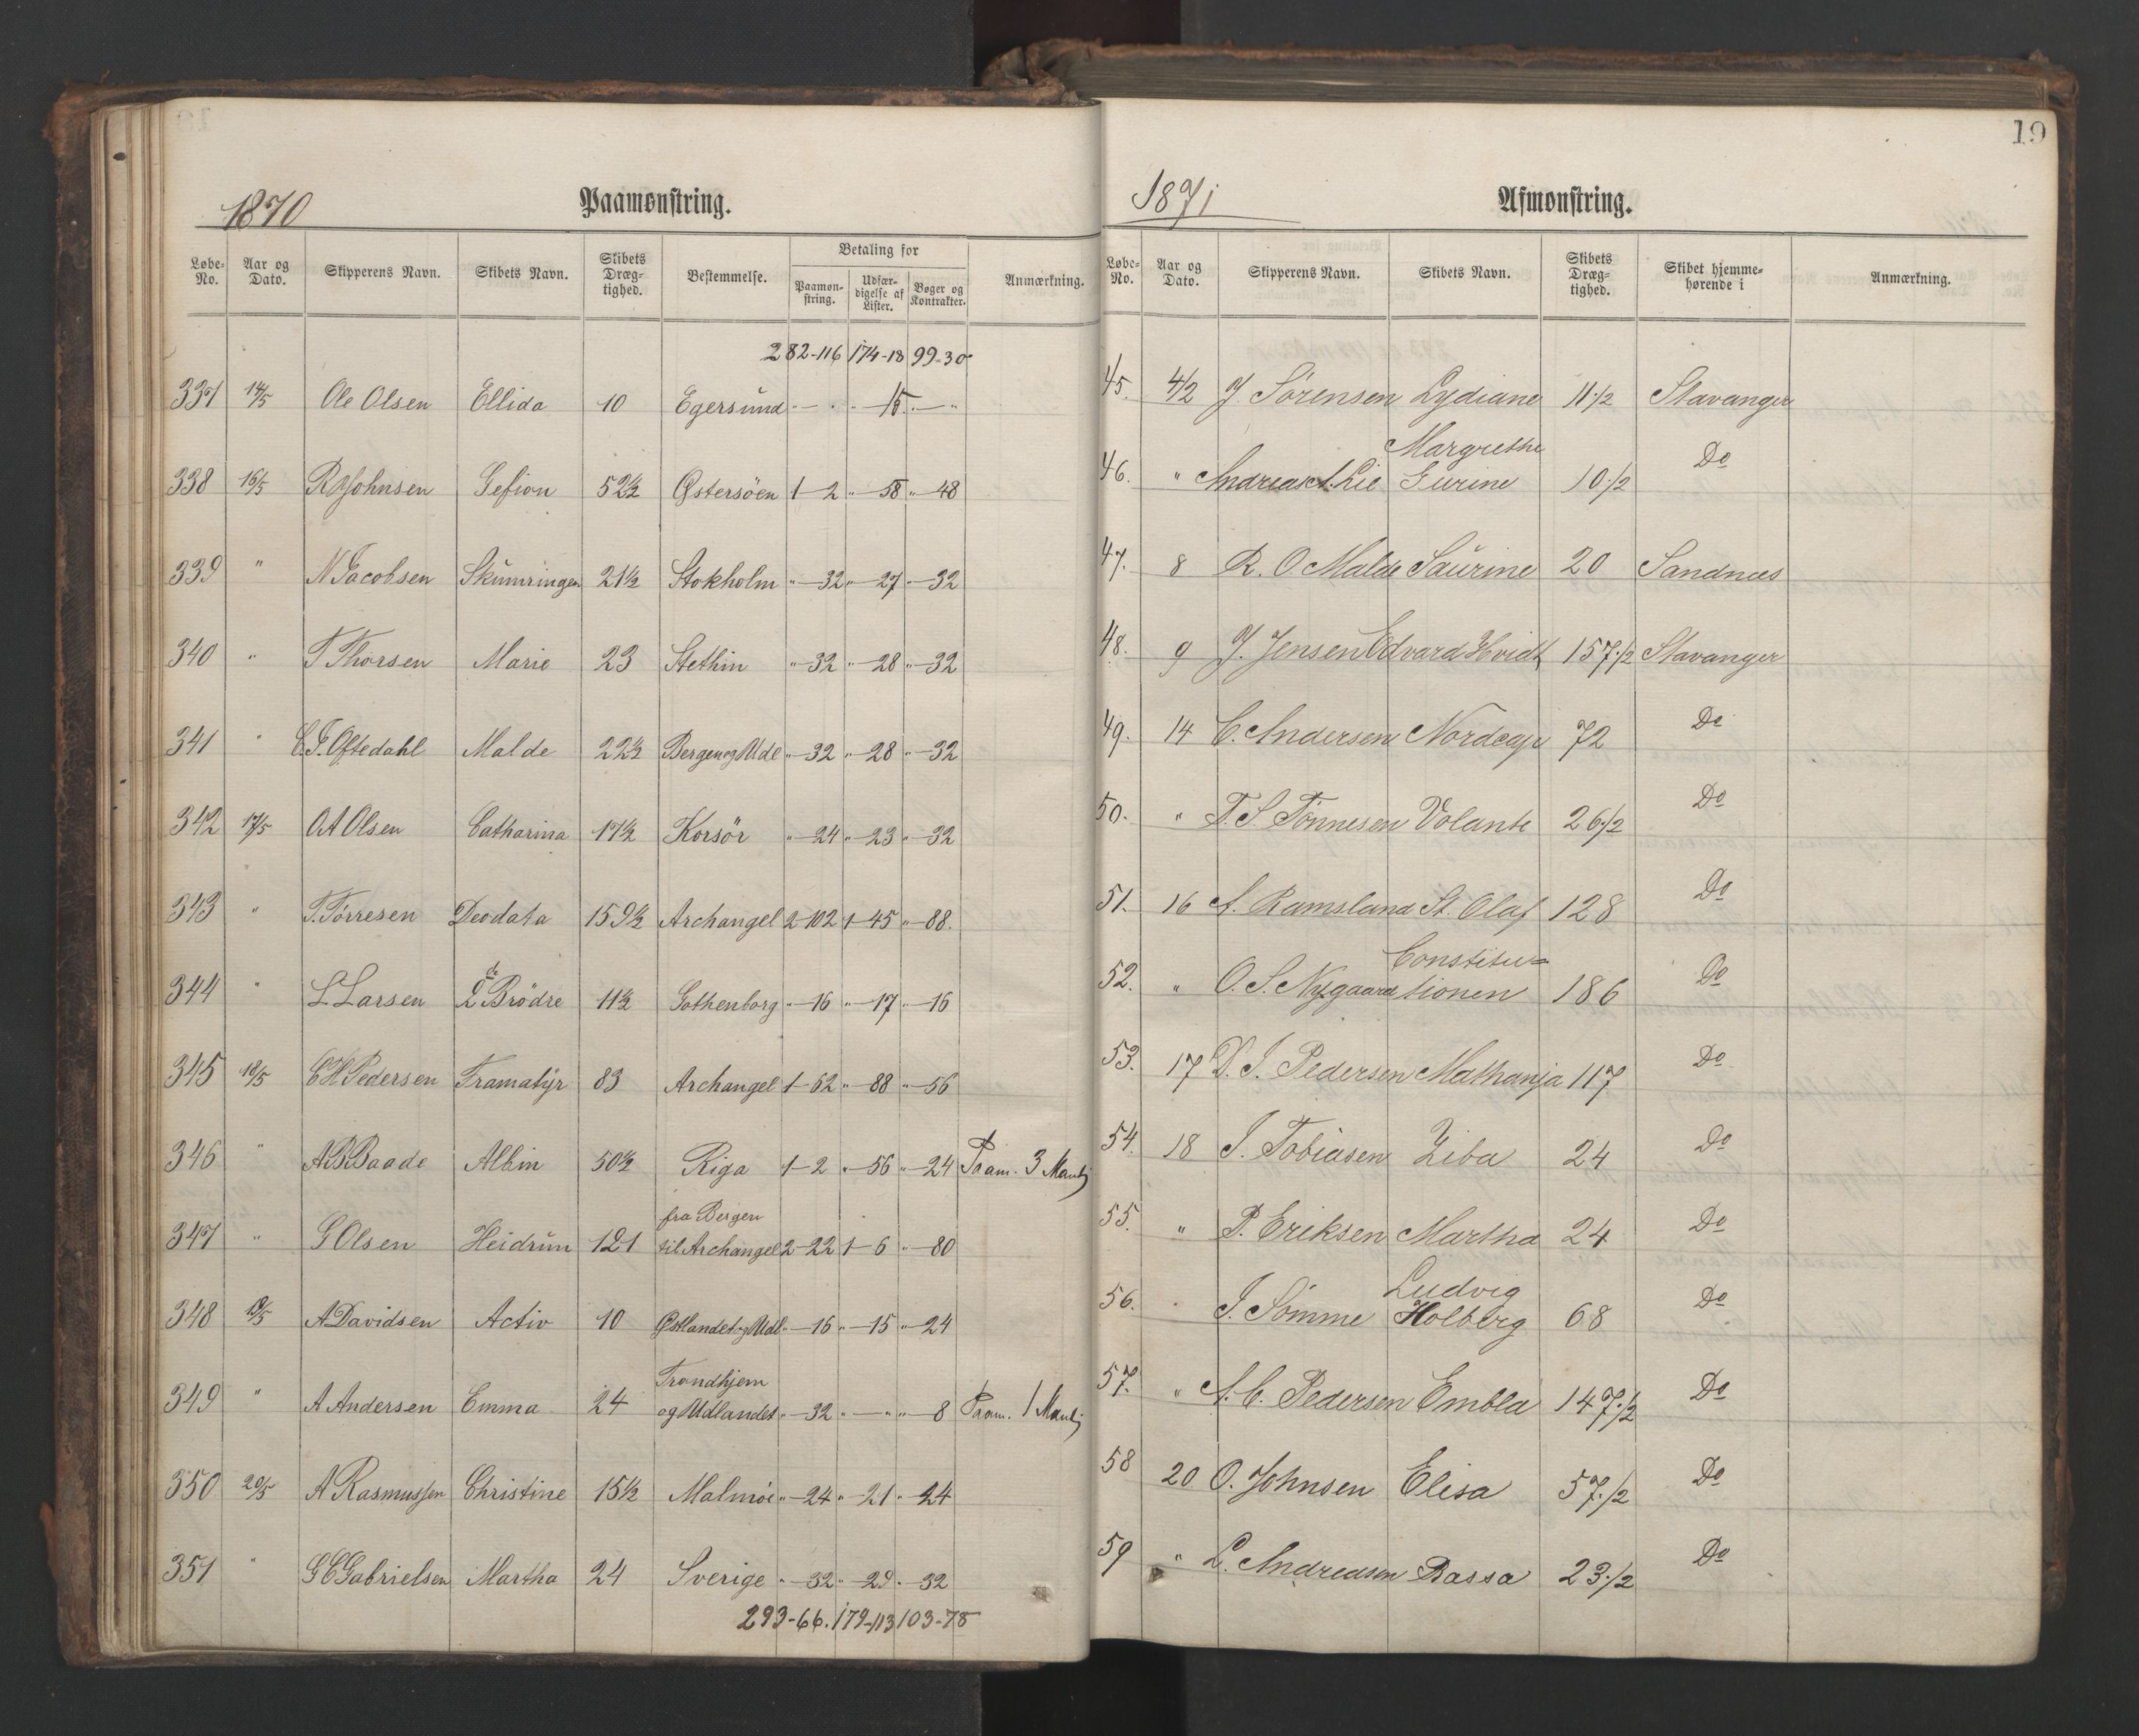 1870 Paamønstring.
Løbe-No. Aar og Dato. Skipperens Navn. Skibets Navn. Skibets Dræg-tighed. Bestemmelse. Betaling for Paamøn-string. Udfær-digelse af Lister. Bøger og Kontrakter. Anmærkning.
282-116 174-18 99-30
337 14/5 Ole Olsen Ellida 10 Egersund " — " " — 15 " — "
338 16/5 Johnsen Gefion 52½ Østersöen 1—2 "—58 "—48
339 " N Jacobsen Skumringen 21½ Stokholm "—32 "—27 "—32
340 " T Thorsen Marie 23 Stethin "—32 "—28 "—32
341 " E.T. Oftedahl Malde 22½ Bergen og Udl "—32 "—28 "—32
342 17/5 O A Olsen Catharina 17½ Korsör "—24 "—23 "—32
343 " T. Törresen Deodata 159½ Archangel 2-102 1-45 "-88.
344 " L Larsen 2de Brödre 11½ Gothenborg "—16 "—17 "—16
345 18/5 C H Pedersen Framatyr 83 Archangel 1—62 "—88 "—56
346 " A B Baade Albin 50½ Riga 1—2 "—56 "—24 Paam. 3 Mand
347 " G Olsen Heidrun 121 fra Bergen
til Archangel 2—22 1—6 "—80
348 19/5 A Davidsen Activ 10 Østlandet og Udl "—16 "—15 "—24
349 " A Andersen Emma 24 Trondhjem
og Udlandet "—32 "—" "—8 Paam. 1 Mand
350 20/5 A Rasmussen Christine 15½ Malmöe "—24 "—21 "—24
351 " G C Gabrielsen Martha 24 Sverige "—32 "—29 "—32
293-66. 179-113 103-78
19
1871 Afmønstring.
Løbe-No. Aar og Dato. Skipperens Navn. Skibets Navn. Skibets Dræg-tighed. Skibet hjemme-hørende i Anmærkning.
45. 4/2 J. Sörensen Lydiane 11.½ Stavanger
46. " Andreas A. Lie Margrethe
Gurine 10.½ Do
47. 8 R. O. Malde Saurine 20 Sandnæs
48. 9 J. Jensen Edvard Hvidt 157.½ Stavanger
49. 14 C. Andersen Nordcap 72 Do
50. " T. S. Tönnesen Volante 26.½ Do
51. 16 A. Ramsland St. Olaf 128 Do
52. " O. S. Nygaard Constitu=
tionen 186 Do
53. 17 J. Pedersen Mathanja 117 Do
54. 18 J. Tobiasen Ziba 24 Do
55. " P. Eriksen Martha 24 Do
56. " J. Sömme Ludvig
Holberg 68 Do
57. " A. C. Pedersen Embla 147.½ Do
58 20 O. Johnsen Elisa 57.½ Do
59 " L. Andreasen Bassa 23.½ Do